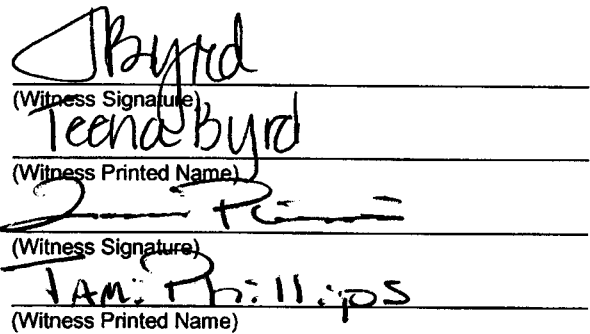 JByrd
(Witness Signature)
Teena Byrd
(Witness Printed Name)
(Witness Signature)
Tami Phillips
(Witness Printed Name)